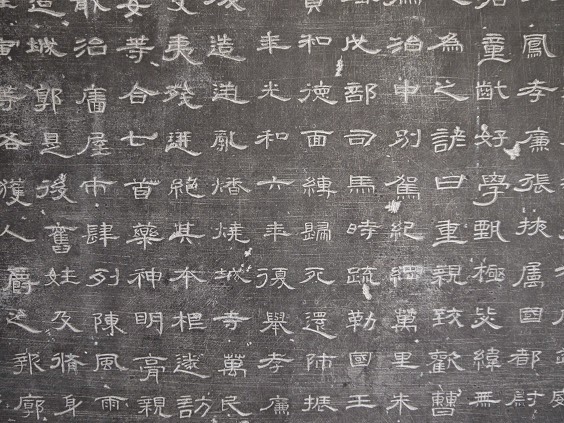 鳳孝廉張掖屬國都尉
童齔好學甄極毖緯無
為之諺曰重親致歡曹
治中別駕紀綱萬里朱
戊部司馬時疏勒國王
和德面縛歸死還師振
年光和六年復舉孝廉
造逆亂燔燒城寺萬民
夷殘迸絕其本根遂訪
等合七首藥神明膏親
治廧屋市肆列陳風雨
造城郭是後舊姓及脩身
寅等各獲人爵之報廓